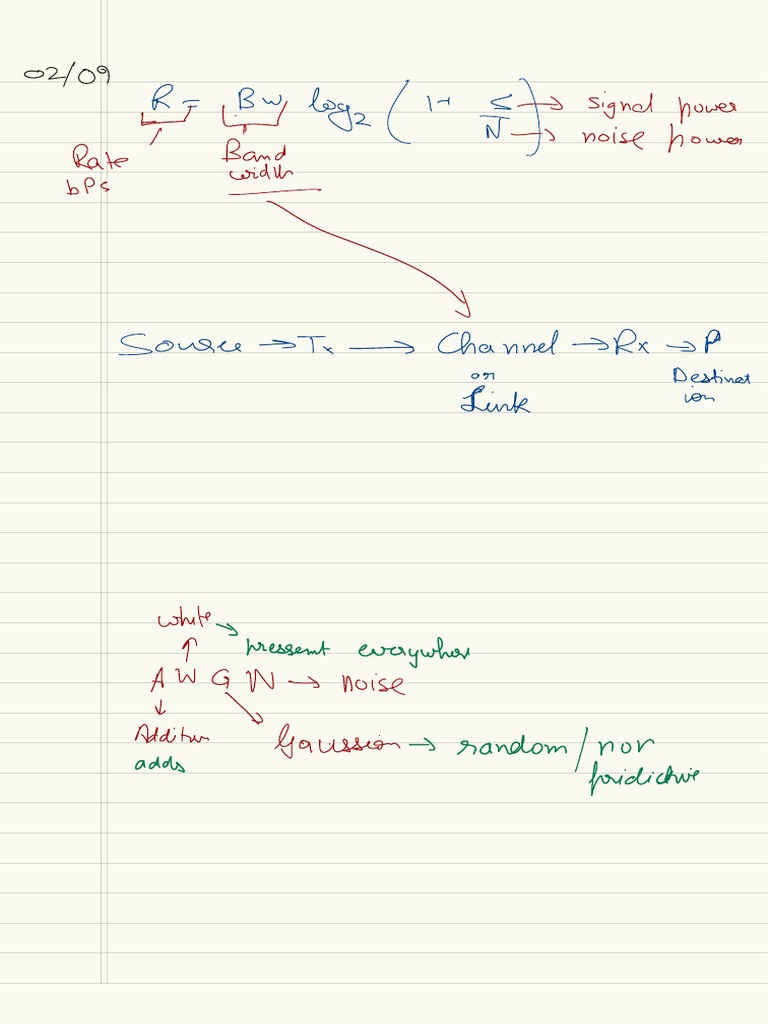 02/09
R = Bw log2 (1+ S/N) → signal power
→ noise power
Rate
bPs
Band
width
Source → Tx → Channel → Rx → P
or
Link
Destinat
ion
white → pressent everywher
A W G N → noise
Additive
adds
Gaussion → random / non
pridictive